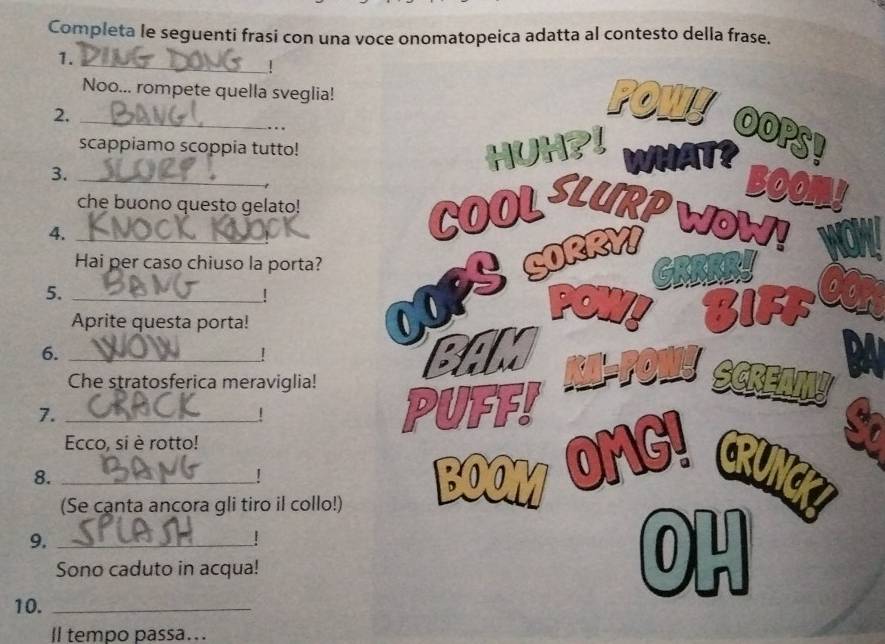 Completa le seguenti frasi con una voce onomatopeica adatta al contesto della frase.
1. DING DONG !
Noo... rompete quella sveglia!
2. BANG! ...
scappiamo scoppia tutto!
3. SLURP! ,
che buono questo gelato!
4. KNOCK KNOCK !
Hai per caso chiuso la porta?
5. BANG !
Aprite questa porta!
6. WOW !
Che stratosferica meraviglia!
7. CRACK !
Ecco, si è rotto!
8. BANG !
(Se canta ancora gli tiro il collo!)
9. SPLASH !
Sono caduto in acqua!
10.
Il tempo passa...
POW!
OOPS!
HUH?!
WHAT?
BOOM!
COOL
SLURP
WOW!
WOW!
SORRY!
GRRRR!
OOPS
POW!
BIFF
BAM
KA-POW!
SCREAM!
PUFF!
BOOM
OMG!
CRUNCK!
OH